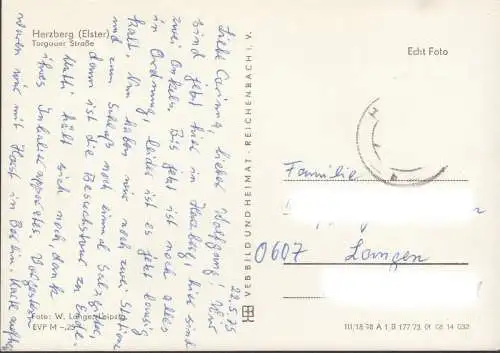 Herzberg (Elster)
Torgauer Straße
Echt Foto
22.5.75
Liebe Corinna, lieber Wolfgang! Wir
sind jetzt hier in Herzberg, hier sind
zwei Onkeln. Bis jetzt ist noch alles
in Ordnung, leider ist es jetzt lausig
kalt. Nun haben wir noch zwei Station
und zum Schluß noch einmal Salzgitter,
dann ist die Besuchstour zu Ende.
Mutti hält sich noch, dank
ihres Inhalierapparates. Vorgestern
waren wir mit Horst in Berlin. Karte
Familie
0607 Langen
VEB BILD UND HEIMAT · REICHENBACH I. V.
Foto: W. Lange, Leipzig
EVP M –,25
III/18-98 A 1 B 177/73 01 08 14 032